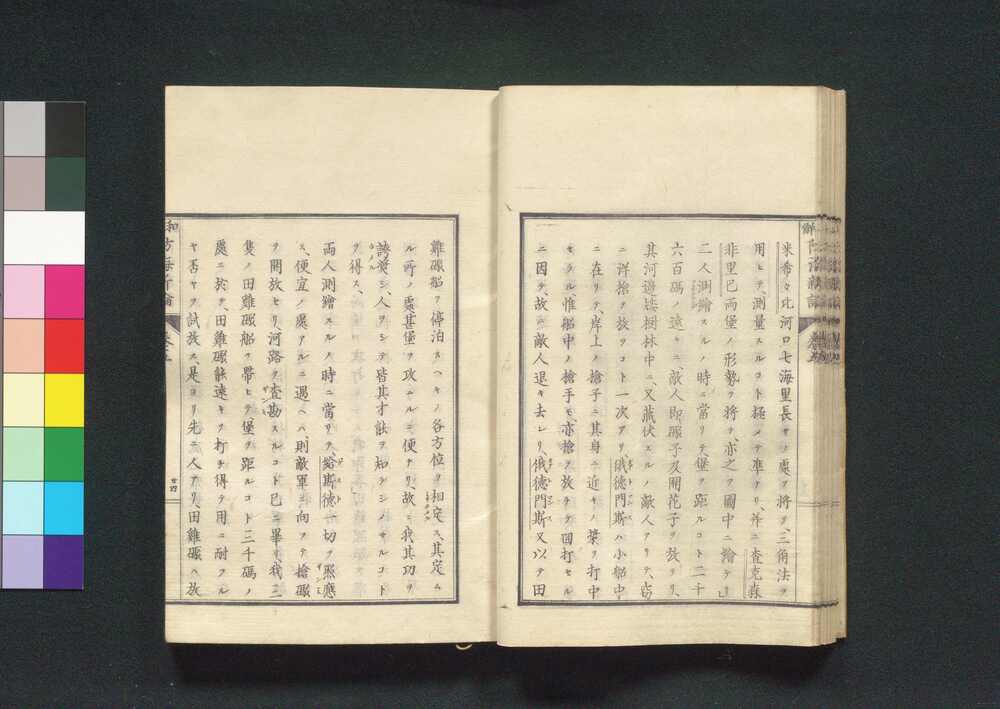 米希々比河口七海里長サノ處ヲ將テ、三角法ヲ
用ヒテ、測量スルコト極メテ準ナリ、并ニ査克森
非里巴兩堡ノ形勢ヲ將テ、亦之ヲ圖中ニ繪ケリ
二人測繪スルノ時ニ當リテ、堡ヲ距ルコト二千
六百碼ノ遠キニ、敵人即礮子及開花子ヲ放チリ、
其河邊矮樹林中ニ、又藏伏スルノ敵人アリテ、竊
ニ洋搶ヲ放ツコト一次アリ、俄德門斯ハ小船中
ニ在リテ、岸上ノ搶子ニ其身ニ近キノ槳ヲ打中
セラル、惟船中ノ搶手モ、亦搶ヲ放チテ回打セル
ニ因テ、故ニ敵人退キ去レリ、俄德門斯又以テ田
雞礮船ヲ停泊スヘキノ各方位ヲ相定ス、其定ム
ル所ノ處甚堡ヲ攻ムルニ便ナリ、故ニ我其功ヲ
誇奬シ、人ヲシテ皆其才能ヲ知ラシメサルコト
ヲ得ス、
兩人測繪スルノ時ニ當リテ、給斯德一切ヲ照應
ス、便宜ノ處アルニ遇ヘハ則敵軍ニ向ヲテ搶礮
ヲ開放セリ、河路ヲ査勘スルコト已ニ畢リ、我三
隻ノ田雞礮船ヲ帶ヒテ、堡ヲ距ルコト三千碼ノ
處ニ於テ、田雞礮能遠キヲ打チ得テ用ニ耐フル
ヤ否ヤヲ試放ス、是ヨリ先ニ人アリ、田雞礮ハ放
廿四